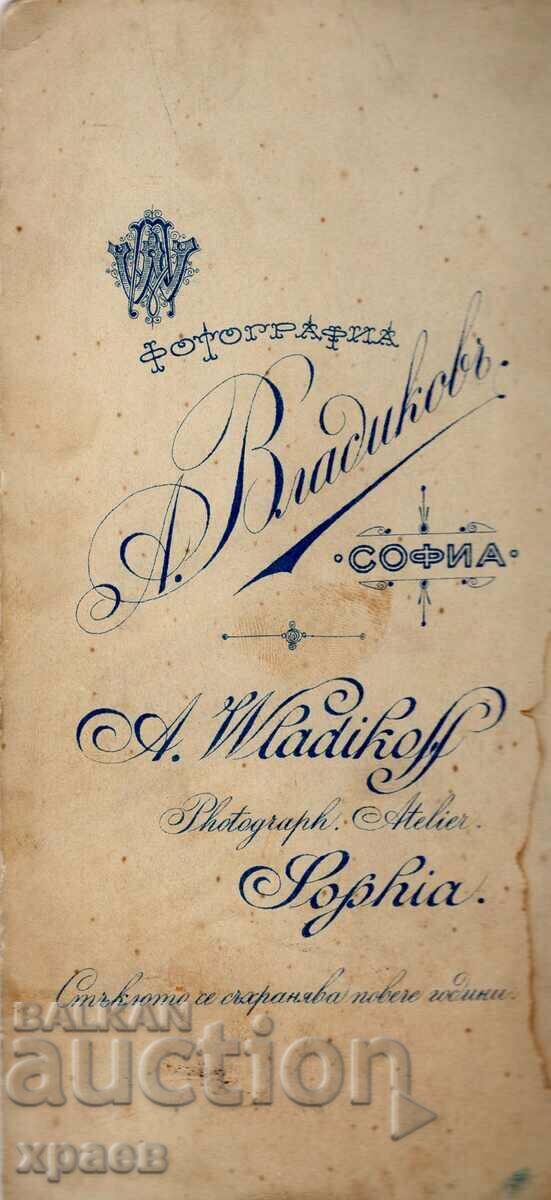 ФОТОГРАФИА
А. Владиковъ.
СОФИА
A. Wladikoff
Photograph. Atelier.
Sophia.
Стъкюто се съхранява повече години.
BALKAN
auction
храев